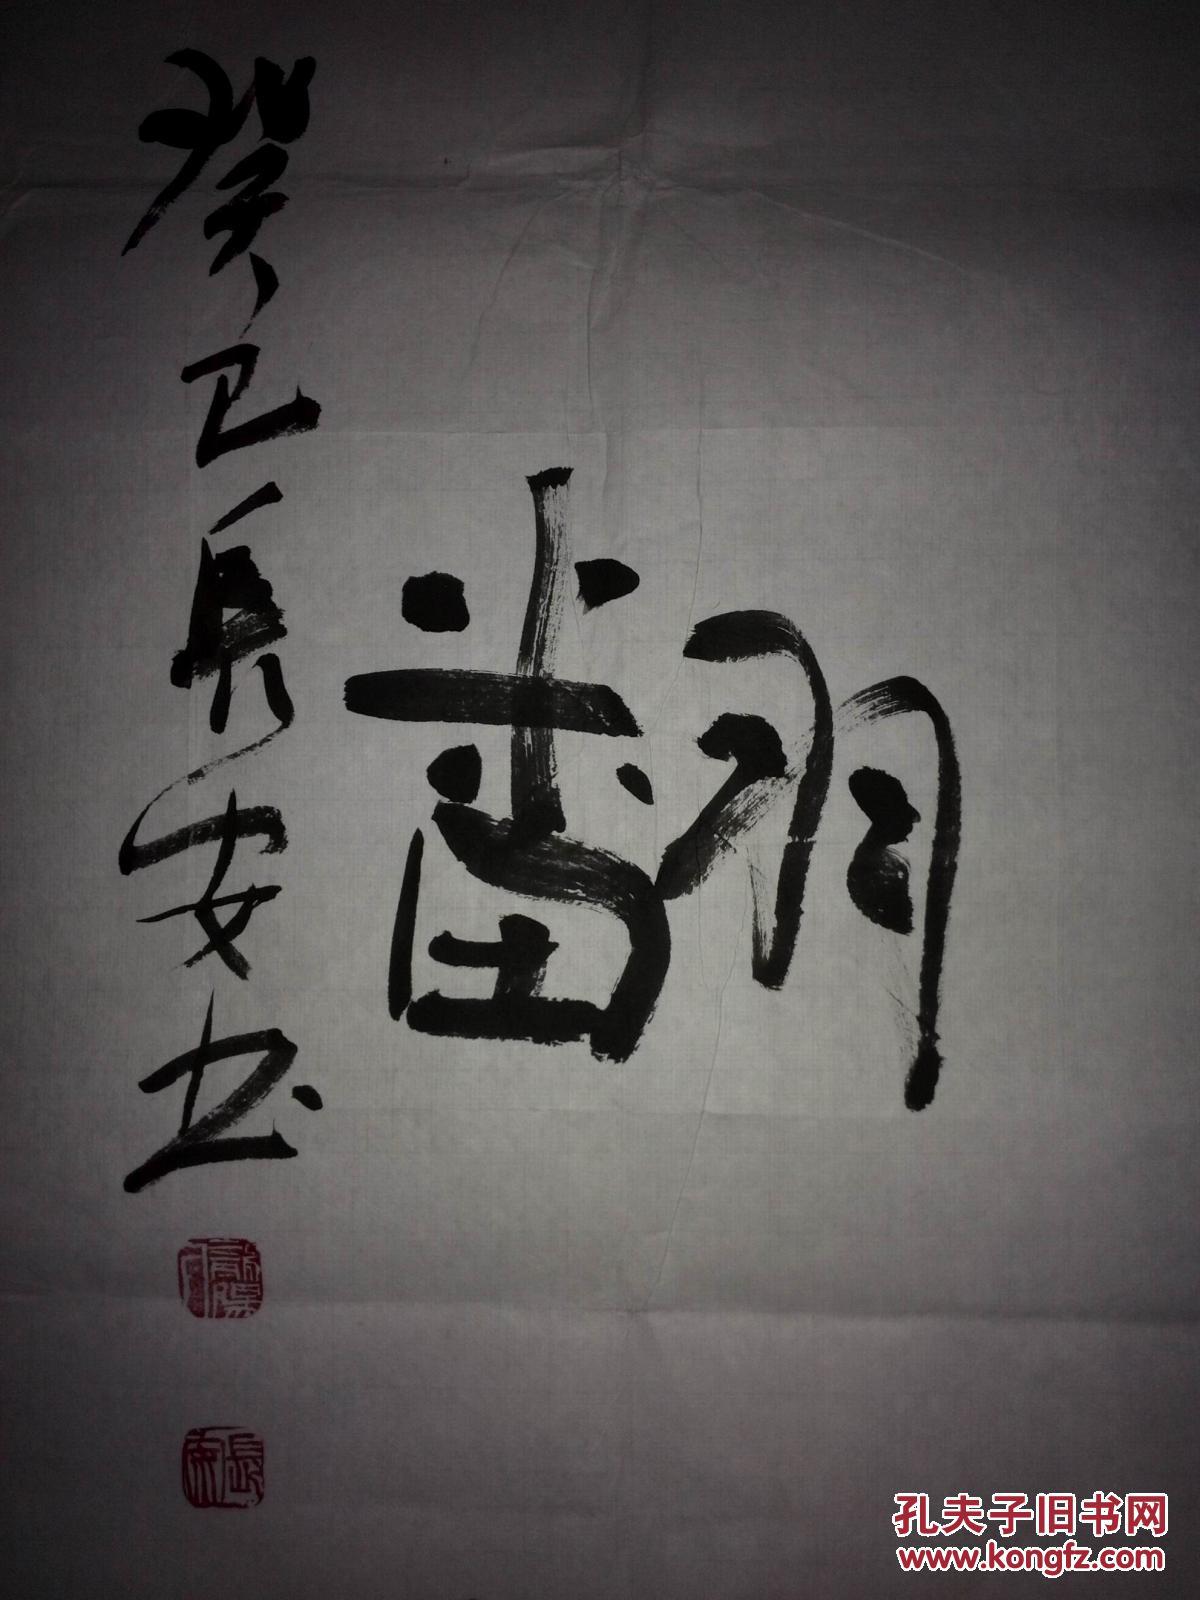 翻
癸巳長安书
長安
孔夫子旧书网
www.kongfz.com